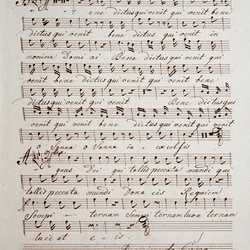 bene dictus qui venit qui venit bene
dictus qui venit bene dictus qui venit in
nomine Domi ni Bene dictus qui venit qui
venit bene dictus qui venit qui venit bene
dictus qui venit Bene dictus qui
venit qui venit bene dictus qui venit
o Sanna o Sanna in excelsis
gnus Dei qui tollis peccata mundi qui
tollis peccata mundi Dona eis Requiem
Sempi ternam Sempi ternam luxæ ternam
luceat e is